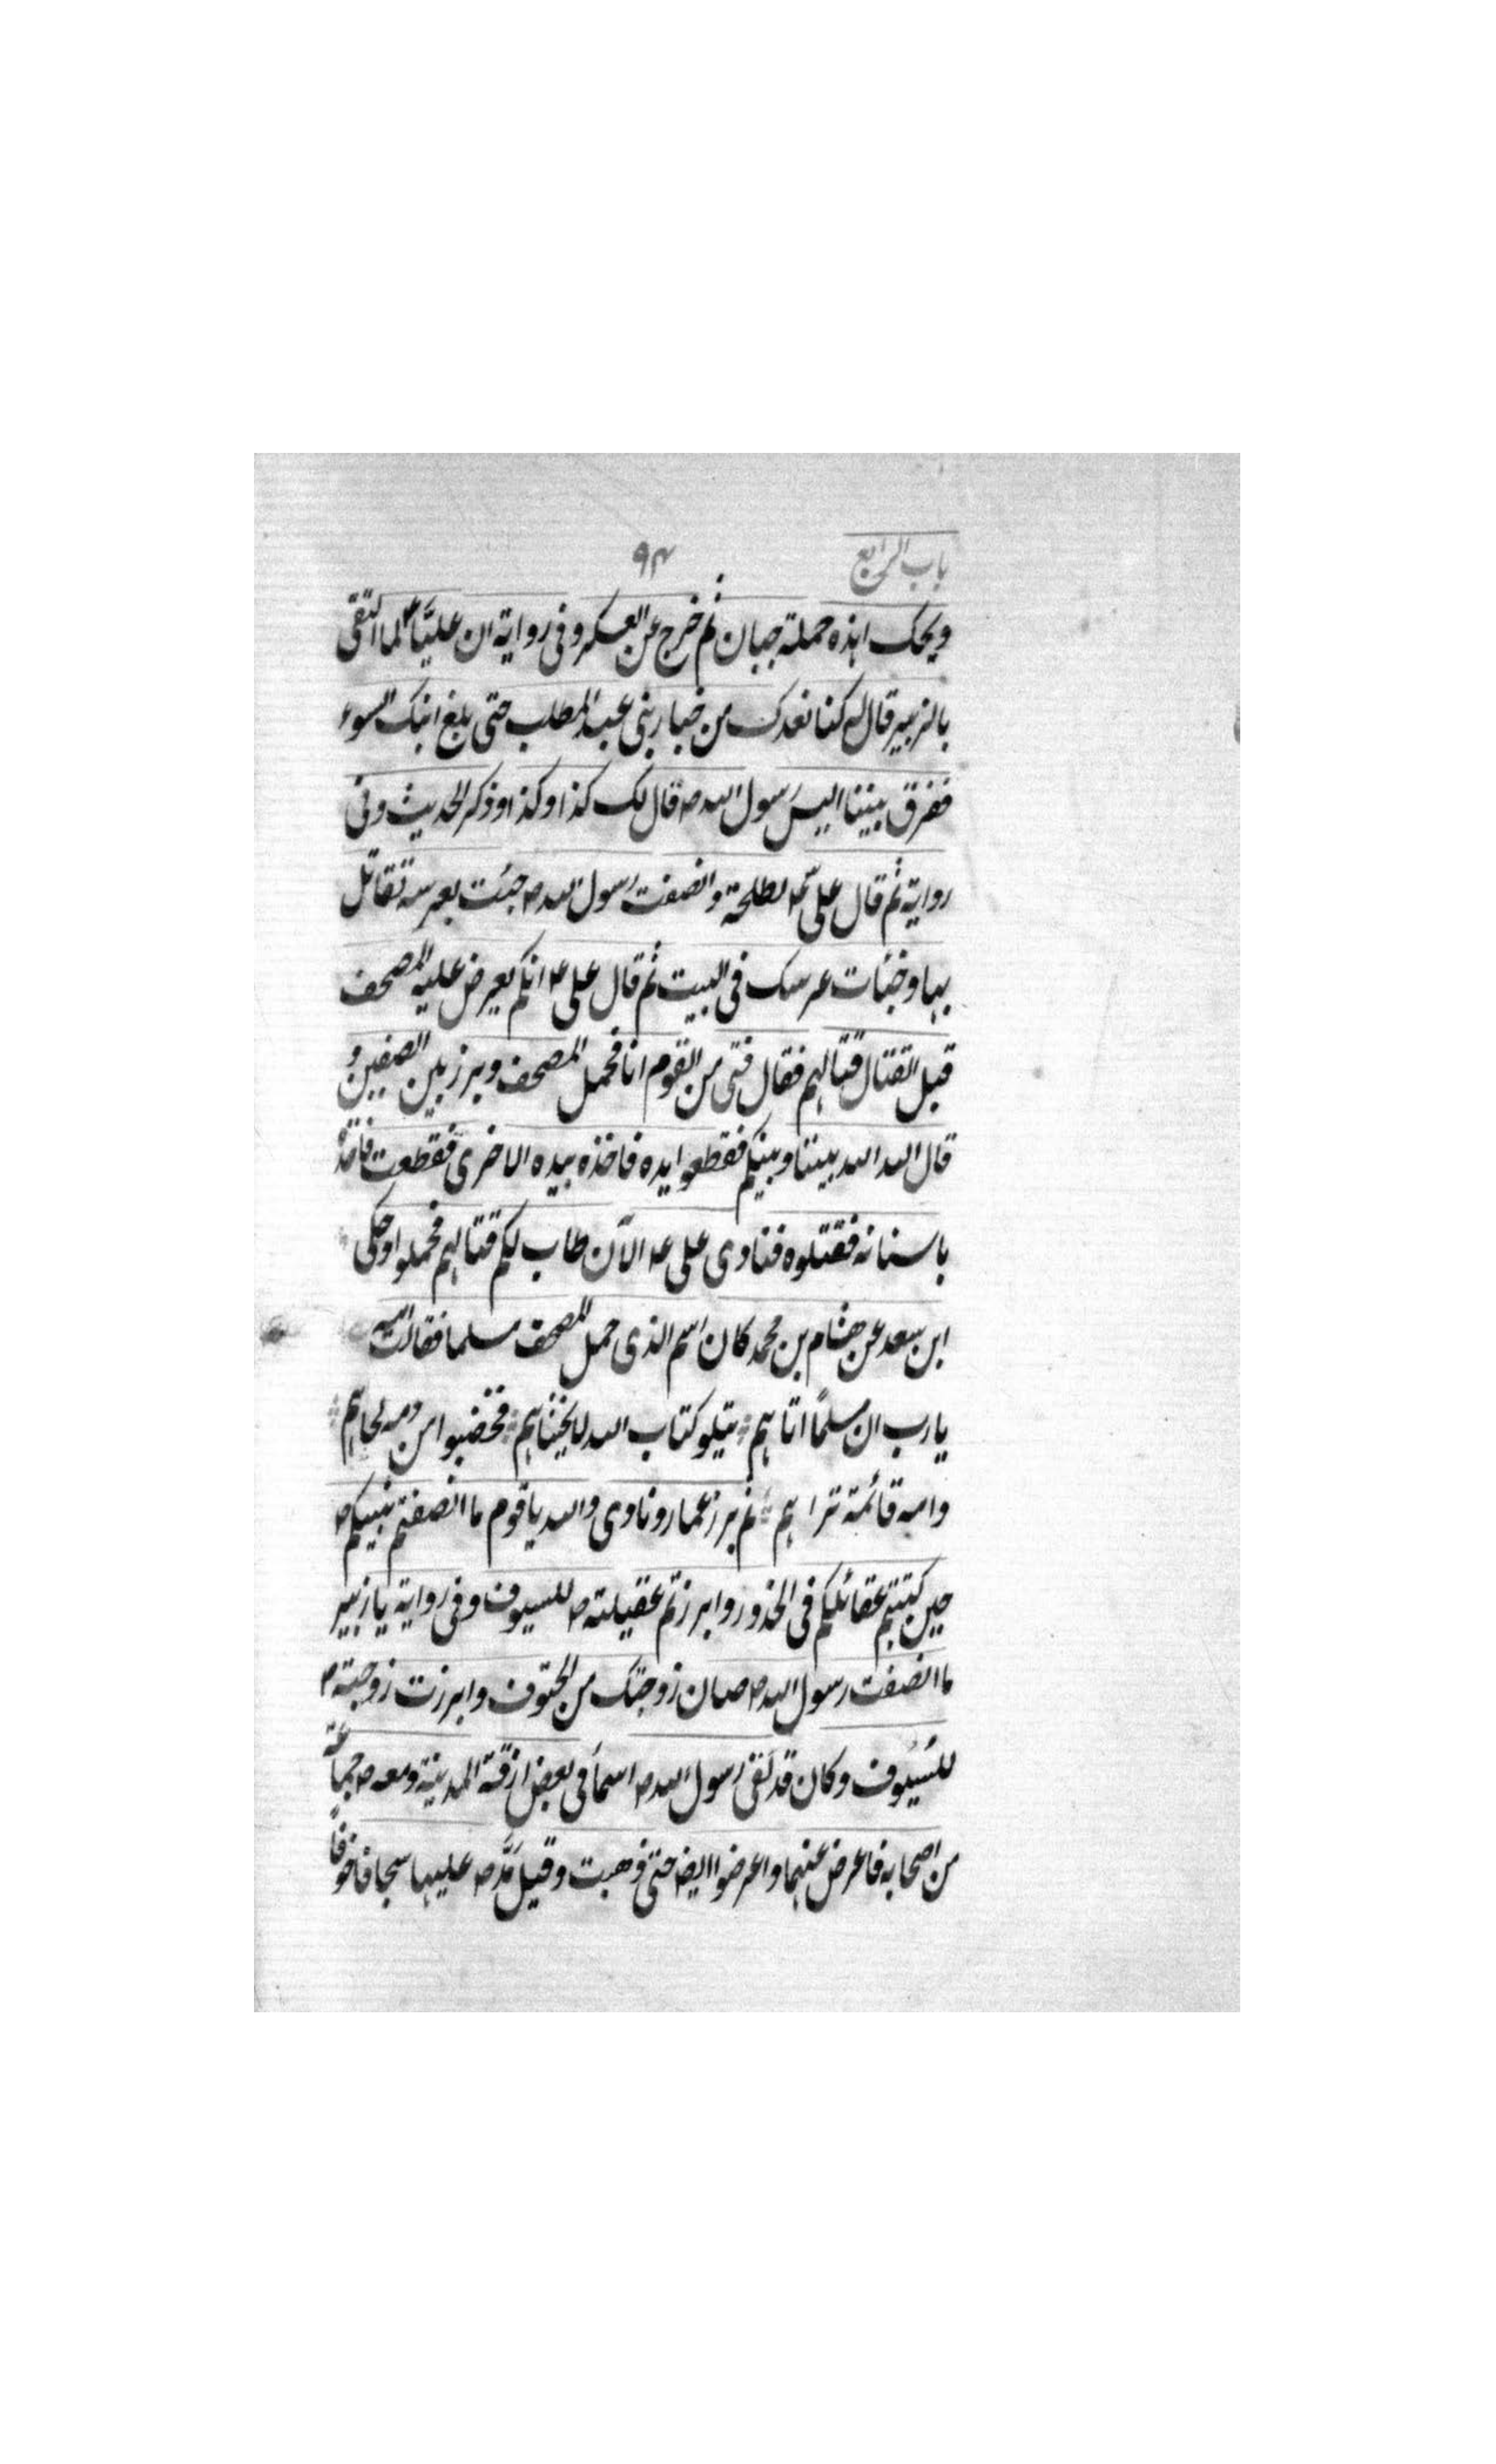 باب الرابع ۹۴
ويحك اهذه حملة جبان ثم خرج عن العسكر وفى رواية ان عليًا ع لما التقى
بالزبير قال له كنا نعدك من خيار بنى عبد المطلب حتى بلغ ابنك السوء
ففرق بيننا اليس رسول الله ص قال لك كذا وكذا وذكر الحديث وفى
رواية ثم قال على ع لطلحة وانصفت رسول الله ص جئت بعرسه تقاتل
بها وخبأت عرسك فى البيت ثم قال على ع ايكم يعرض عليه المصحف
قبل القتال قتالهم فقال فتى من القوم انا فحمل المصحف وبرز بين الصفين و
قال الله الله بيننا وبينكم فقطعوا يده فاخذه بيده الاخرى فقطعت فاخذه
باسنانه فقتلوه فنادى على ع الآن طاب لكم قتالهم فحملوا وحكى
ابن سعد عن هشام بن محمد كان اسم الذى حمل المصحف مسلما فقالت امه
يا رب ان مسلمًا اتاهم يتلو كتاب الله لا يخشاهم فخضبوا من دمه لحاهم
وامه قائمة تراهم ثم برز عمار ونادى والله يا قوم ما انصفتم نبيكم ص
حين كننتم عقائلكم فى الخدور وابرزتم عقيلته ص للسيوف وفى رواية يا زبير
ما انصفت رسول الله ص صان زوجتك من الحتوف وابرزت زوجته ص
للسُيُوف وكان قد لقى رسول الله ص اسما فى بعض ازقة المدينة ومعه ص جماعة
من اصحابه فاعرض عنهما واعرضوا ايضا حتى ذهبت وقيل مَدَّ ص عليها سجافا خوفًا